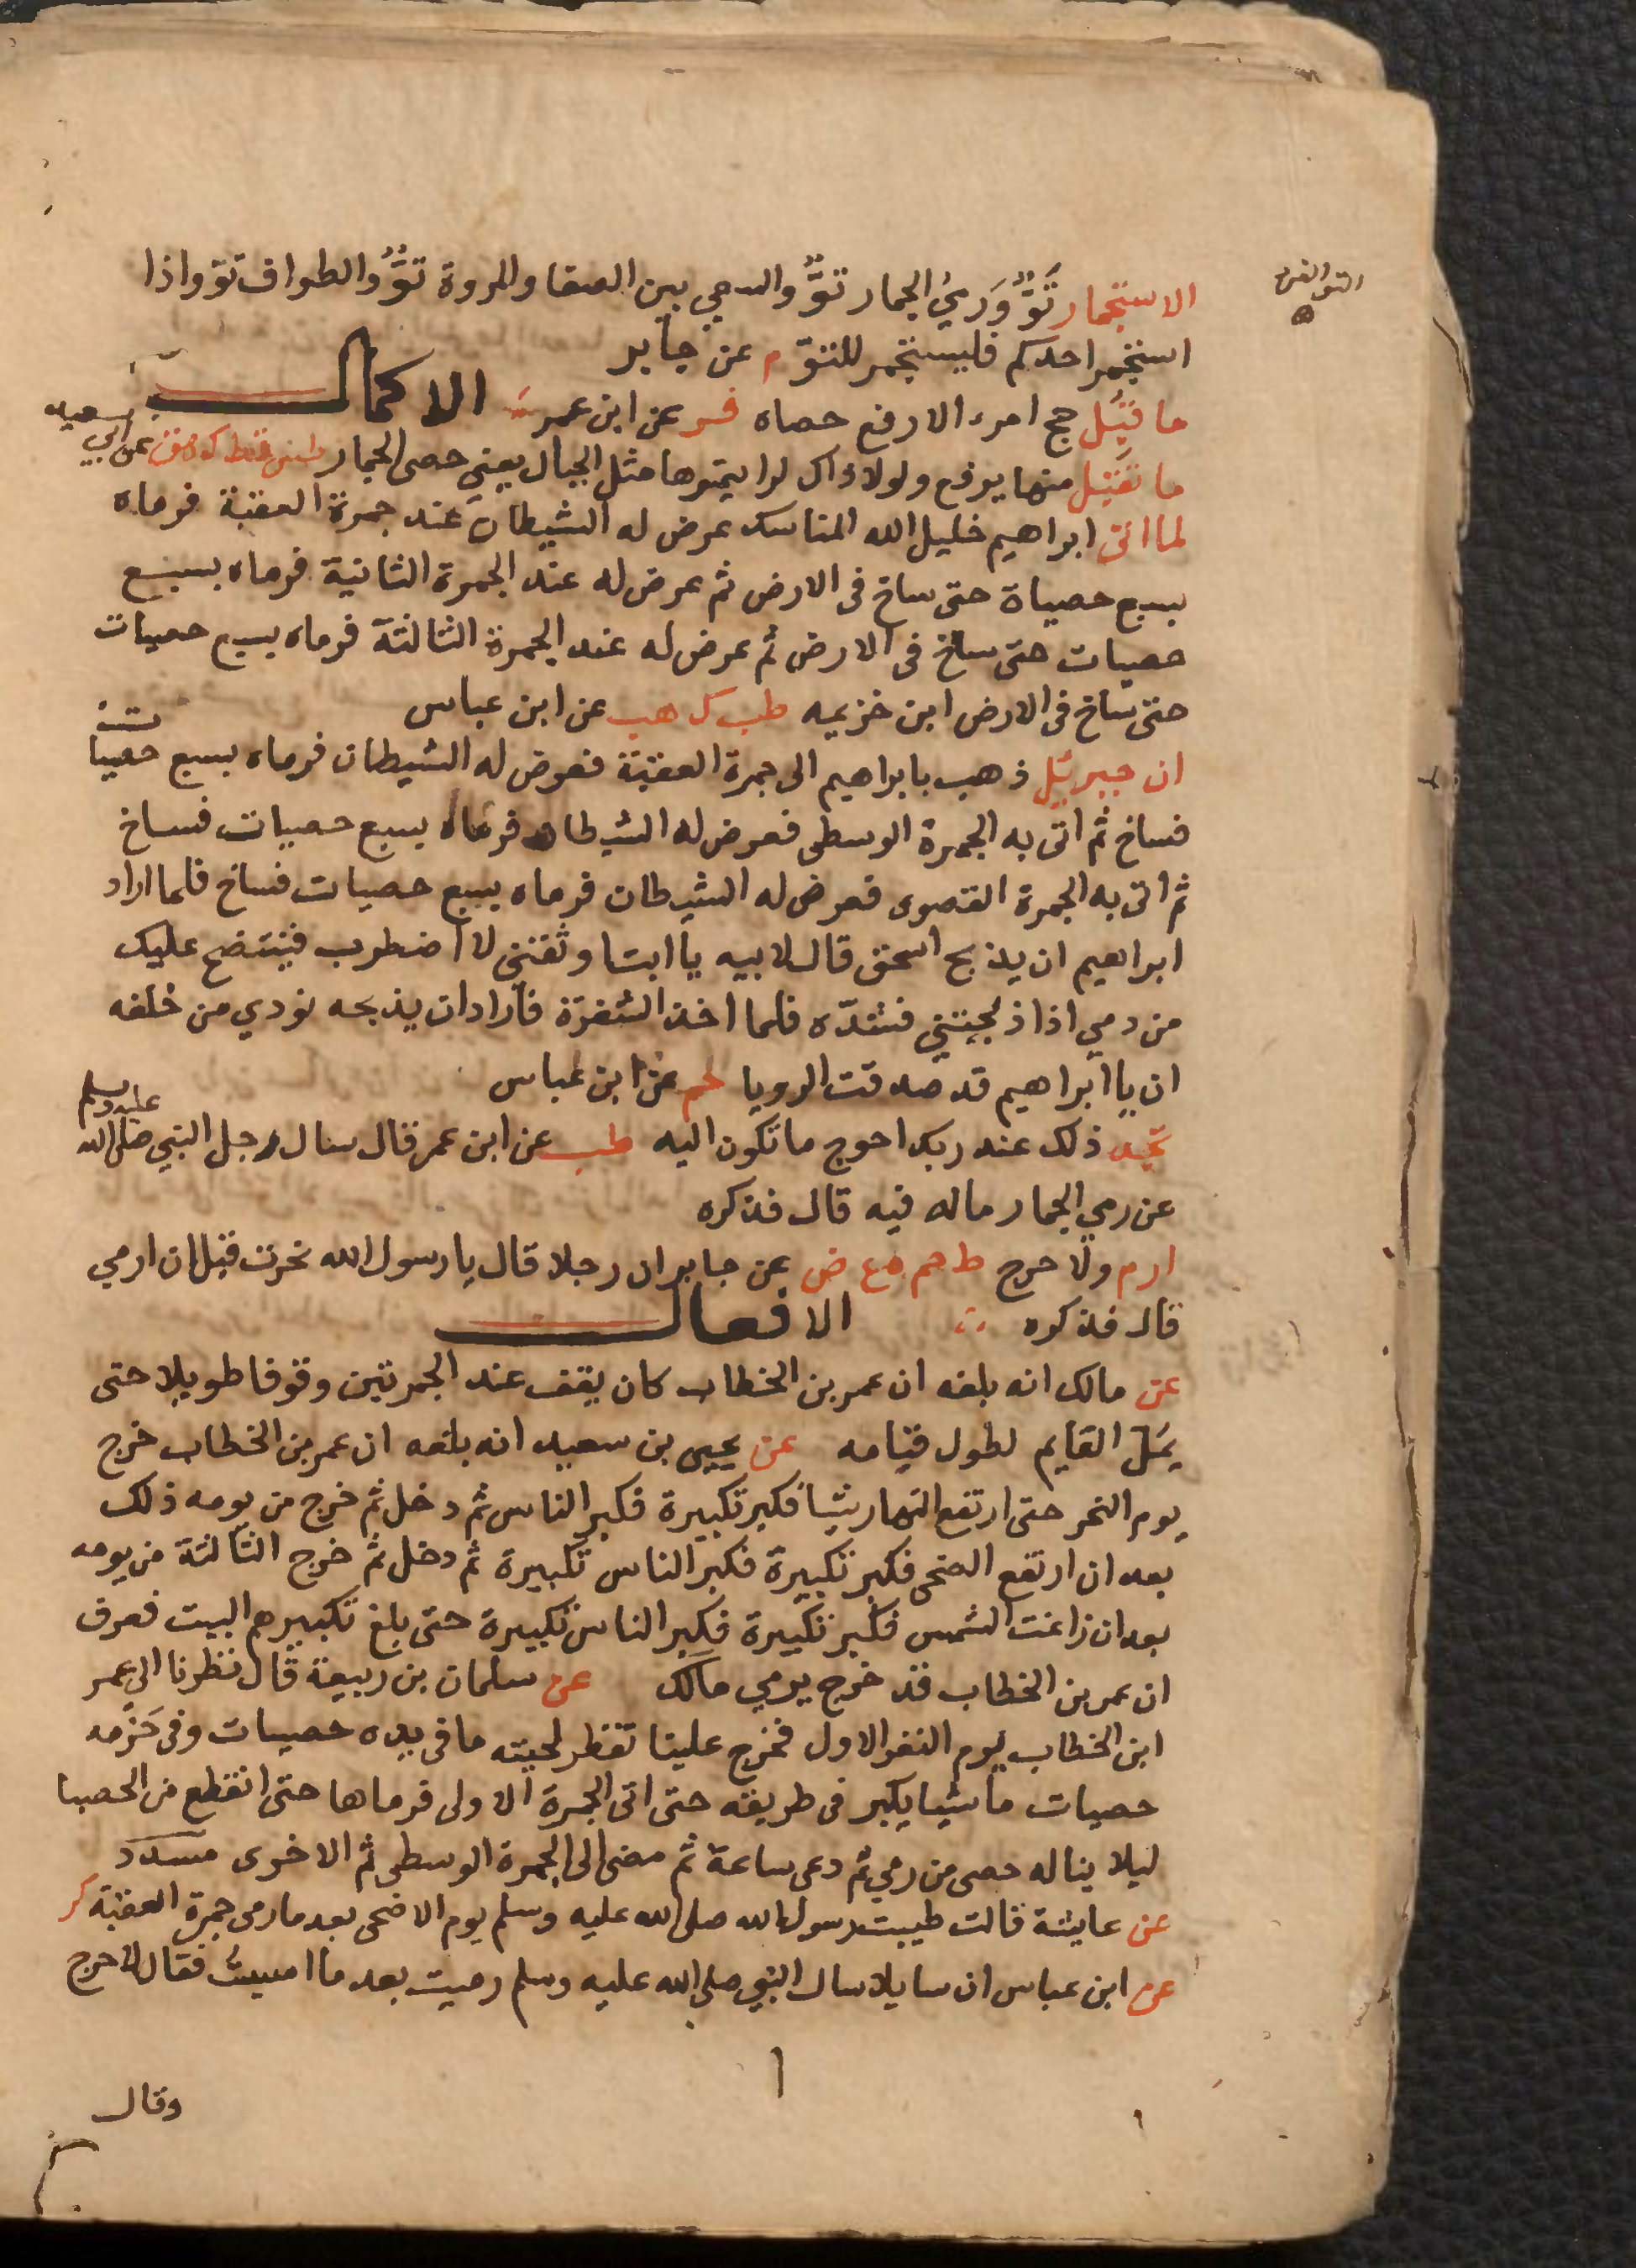 التو الفرد
الاستجمار تَوٌّ وَرميُ الجمار توٌّ والسعي بين الصفا والمروة توٌّ والطواف تو واذا
استجمر احدكم فليستجمر للتوّ م عن جابر
الاكمال
ما قُبِل حج امرء الا رفع حصاه فر عن ابن عمر
ما تقبّل منها يرفع ولولا ذاك لرايتموها مثل الجبال يعني حصى الجمار طس قط ك هق عن ابي سعيد
لما اتى ابراهيم خليل الله المناسك عرض له الشيطان عند جمرة العقبة فرماه
بسبع حصياة حتى ساخ فى الارض ثم عرض له عند الجمرة الثانية فرماه بسبع
حصيات حتى ساخ فى الارض ثم عرض له عند الجمرة الثالثة فرماه بسبع حصيات
حتى ساخ فى الارض ابن خزيمه طب ك هب عن ابن عباس
ان جبريل ذهب بابراهيم الى جمرة العقبة فعرض له الشيطان فرماه بسبع حصيات
فساخ ثم اتى به الجمرة الوسطى فعرض له الشيطان فرماه بسبع حصيات فساخ
ثم اتى به الجمرة القصوى فعرض له الشيطان فرماه بسبع حصيات فساخ فلما اراد
ابراهيم ان يذبح اسحق قال لابيه يا ابتا وثقنى لا اضطرب فينتضح عليك
من دمي اذا ذبحتني فشدّه فلما اخذ الشفرة فاراد ان يذبحه نودي من خلفه
ان يا ابراهيم قد صدقت الرويا حم عن ابن عباس
تجد ذلك عند ربك احوج ما تكون اليه طب عن ابن عمر قال سال رجل النبي صلى الله عليه وسلم
عن رمي الجمار ماله فيه قال فذكره
ارم ولا حرج ط حم ع ض عن جابر ان رجلا قال يا رسول الله نحرت قبل ان ارمي
قال فذكره الافعال
عن مالك انه بلغه ان عمر بن الخطاب كان يقف عند الجمرتين وقوفا طويلا حتى
يَمَلّ القايم لطول قيامه عن يحيى بن سعيد انه بلغه ان عمر بن الخطاب خرج
يوم النحر حتى ارتفع النهار شيا فكبر تكبيرة فكبر الناس ثم دخل ثم خرج من يومه ذلك
بعد ان ارتفع الضحى فكبر تكبيرة فكبر الناس تكبيرة ثم دخل ثم خرج الثالثة من يومه
بعد ان زاغت الشمس فكبر تكبيرة فكبر الناس تكبيرة حتى بلغ تكبيرهم البيت فعرف
ان عمر بن الخطاب قد خرج يرمي مالك عن سلمان بن ربيعة قال نظرنا الى عمر
ابن الخطاب يوم النفر الاول فخرج علينا تقطر لحيته ما فى يده حصيات وفى حَزمه
حصيات ماشيا يكبر فى طريقه حتى اتى الجمرة الاولى فرماها حتى انقطع من الحصبا
ليلا يناله حصى من رمي ثم دعى ساعة ثم مضى الى الجمرة الوسطى ثم الاخرى مسدد
عن عايشة قالت طيبت رسول الله صلى الله عليه وسلم يوم الاضحى بعد ما رمى جمرة العقبة كر
عن ابن عباس ان سايلا سال النبي صلى الله عليه وسلم رميت بعد ما امسيت فقال لا حرج
وقال